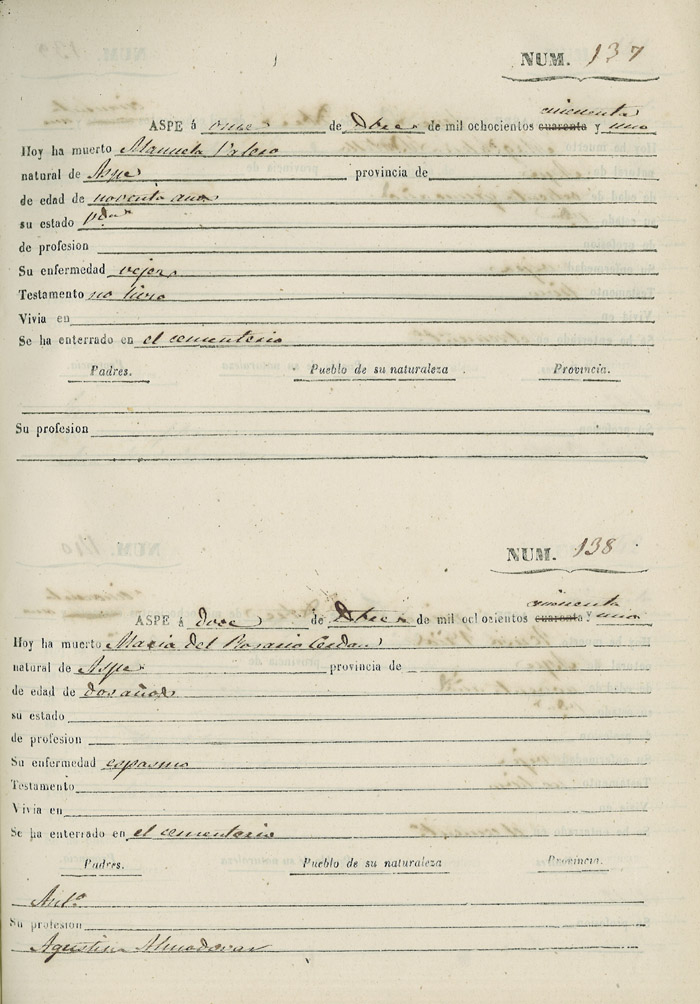 NUM. 137
cincuenta
ASPE á once de Dbre de mil ochocientos cuarenta y uno
Hoy ha muerto Manuela
natural de Aspe provincia de
de edad de noventa años
su estado
de profesion
Su enfermedad vejez
Testamento no hizo
Vivia en
Se ha enterrado en el cementerio
Padres. Pueblo de su naturaleza Provincia.
Su profesion
NUM. 138
cincuenta
ASPE á doce de Dbre de mil ochocientos cuarenta y uno
Hoy ha muerto Maria del Rosario Cerdan
natural de Aspe provincia de
de edad de dos años
su estado
de profesion
Su enfermedad espasmo
Testamento
Vivia en
Se ha enterrado en el cementerio
Padres. Pueblo de su naturaleza Provincia.
Antº
Su profesion
Agustina Almodovar